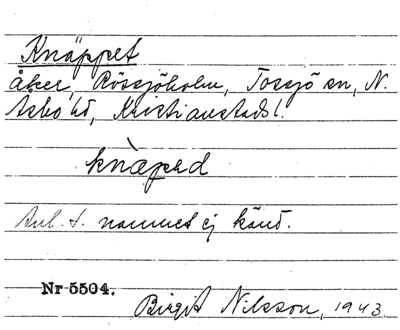 Knäppet
åker, Rössjöholm, Tossjö sn, N.
Åsbo hd, Kristianstads l.
knæpəd
Anl. t. namnet ej känd.
Nr 5504.
Birgit Nilsson, 1943.